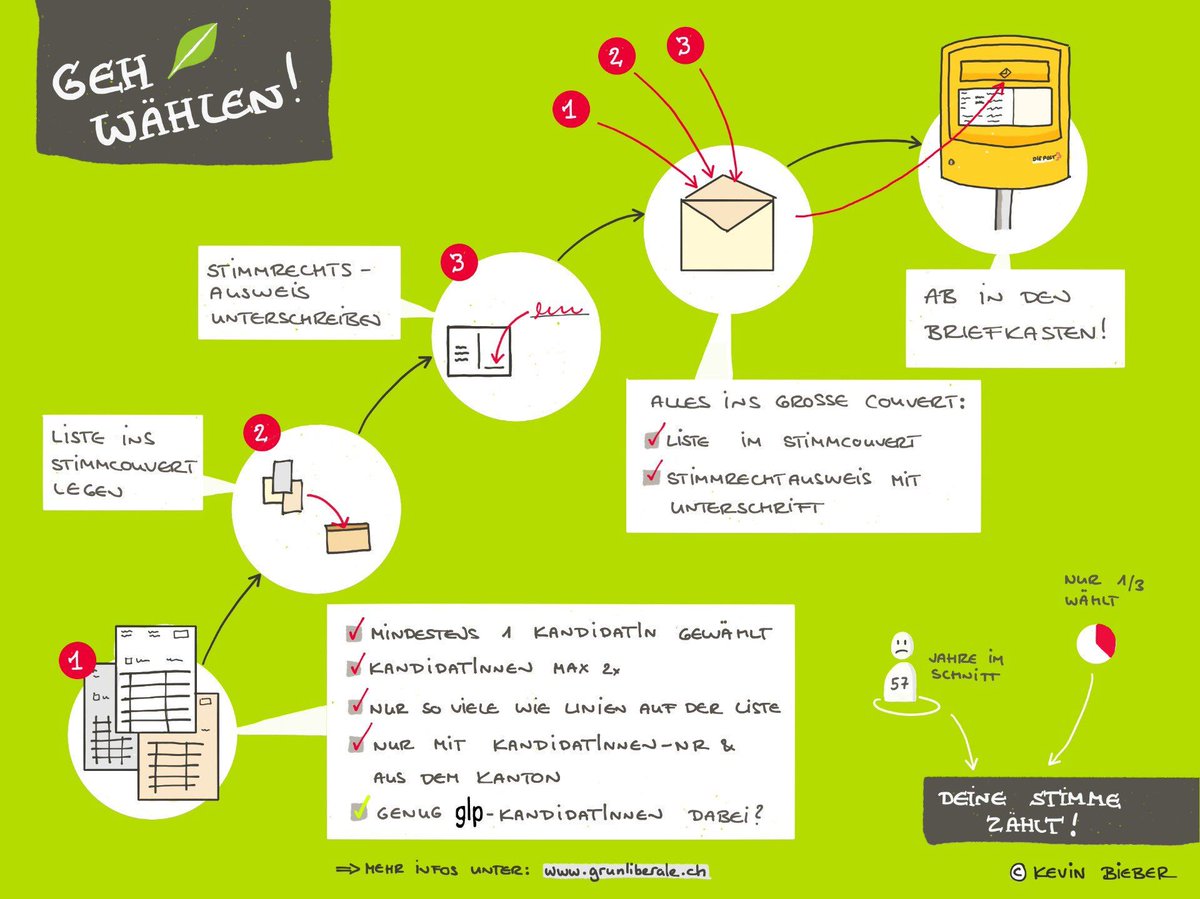 GEH
WÄHLEN!
1
2
3
DIE POST
STIMMRECHTS-
AUSWEIS
UNTERSCHREIBEN
3
AB IN DEN
BRIEFKASTEN!
ALLES INS GROSSE COUVERT:
LISTE IM STIMMCOUVERT
STIMMRECHTAUSWEIS MIT
UNTERSCHRIFT
LISTE INS
STIMMCOUVERT
LEGEN
2
1
MINDESTENS 1 KANDIDATIN GEWÄHLT
KANDIDATINNEN MAX 2x
NUR SO VIELE WIE LINIEN AUF DER LISTE
NUR MIT KANDIDATINNEN-NR &
AUS DEM KANTON
GENUG glp-KANDIDATINNEN DABEI?
NUR 1/3
WÄHLT
57
JAHRE IM
SCHNITT
DEINE STIMME
ZÄHLT!
⇒ MEHR INFOS UNTER: www.grunliberale.ch
© KEVIN BIEBER